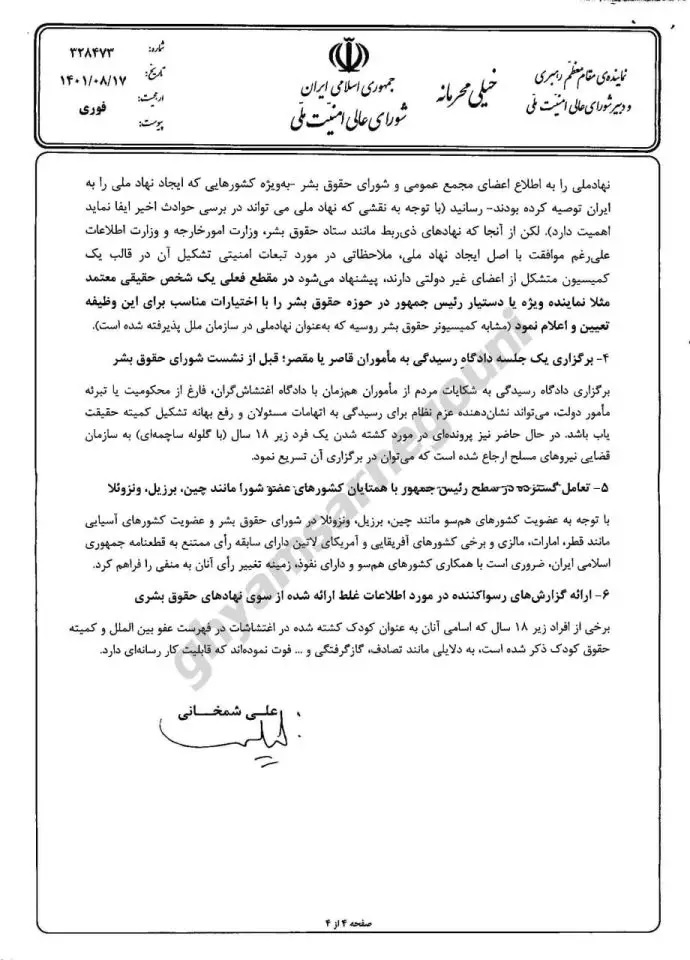 شماره: ۳۲۸۴۷۳
تاریخ: ۱۴۰۱/۰۸/۱۷
ارجحیت: فوری
پیوست:
جمهوری اسلامی ایران
شورای عالی امنیت ملی
خیلی محرمانه
نماینده‌ی مقام معظم رهبری
و دبیر شورای عالی امنیت ملی
نهادملی را به اطلاع اعضای مجمع عمومی و شورای حقوق بشر -به‌ویژه کشورهایی که ایجاد نهاد ملی را به
ایران توصیه کرده بودند- رسانید (با توجه به نقشی که نهاد ملی می تواند در برسی حوادث اخیر ایفا نماید
اهمیت دارد). لکن از آنجا که نهادهای ذی‌ربط مانند ستاد حقوق بشر، وزارت امورخارجه و وزارت اطلاعات
علی‌رغم موافقت با اصل ایجاد نهاد ملی، ملاحظاتی در مورد تبعات امنیتی تشکیل آن در قالب یک
کمیسیون متشکل از اعضای غیر دولتی دارند، پیشنهاد می‌شود در مقطع فعلی یک شخص حقیقی معتمد
مثلا نماینده ویژه یا دستیار رئیس جمهور در حوزه حقوق بشر را با اختیارات مناسب برای این وظیفه
تعیین و اعلام نمود (مشابه کمیسیونر حقوق بشر روسیه که به‌عنوان نهادملی در سازمان ملل پذیرفته شده است).
۴- برگزاری یک جلسه دادگاه رسیدگی به مأموران قاصر یا مقصر؛ قبل از نشست شورای حقوق بشر
برگزاری دادگاه رسیدگی به شکایات مردم از مأموران هم‌زمان با دادگاه اغتشاش‌گران، فارغ از محکومیت یا تبرئه
مأمور دولت، می‌تواند نشان‌دهنده عزم نظام برای رسیدگی به اتهامات مسئولان و رفع بهانه تشکیل کمیته حقیقت
یاب باشد. در حال حاضر نیز پرونده‌ای در مورد کشته شدن یک فرد زیر ۱۸ سال (با گلوله ساچمه‌ای) به سازمان
قضایی نیروهای مسلح ارجاع شده است که می‌توان در برگزاری آن تسریع نمود.
۵- تعامل گسترده در سطح رئیس جمهور با همتایان کشورهای عضو شورا مانند چین، برزیل، ونزوئلا
با توجه به عضویت کشورهای هم‌سو مانند چین، برزیل، ونزوئلا در شورای حقوق بشر و عضویت کشورهای آسیایی
مانند قطر، امارات، مالزی و برخی کشورهای آفریقایی و آمریکای لاتین دارای سابقه رأی ممتنع به قطعنامه جمهوری
اسلامی ایران، ضروری است با همکاری کشورهای هم‌سو و دارای نفوذ، زمینه تغییر رأی آنان به منفی را فراهم کرد.
۶- ارائه گزارش‌های رسواکننده در مورد اطلاعات غلط ارائه شده از سوی نهادهای حقوق بشری
برخی از افراد زیر ۱۸ سال که اسامی آنان به عنوان کودک کشته شده در اغتشاشات در فهرست عفو بین الملل و کمیته
حقوق کودک ذکر شده است، به دلایلی مانند تصادف، گازگرفتگی و ... فوت نموده‌اند که قابلیت کار رسانه‌ای دارد.
علی شمخانی
صفحه ۴ از ۴
ghyamsarnegouni